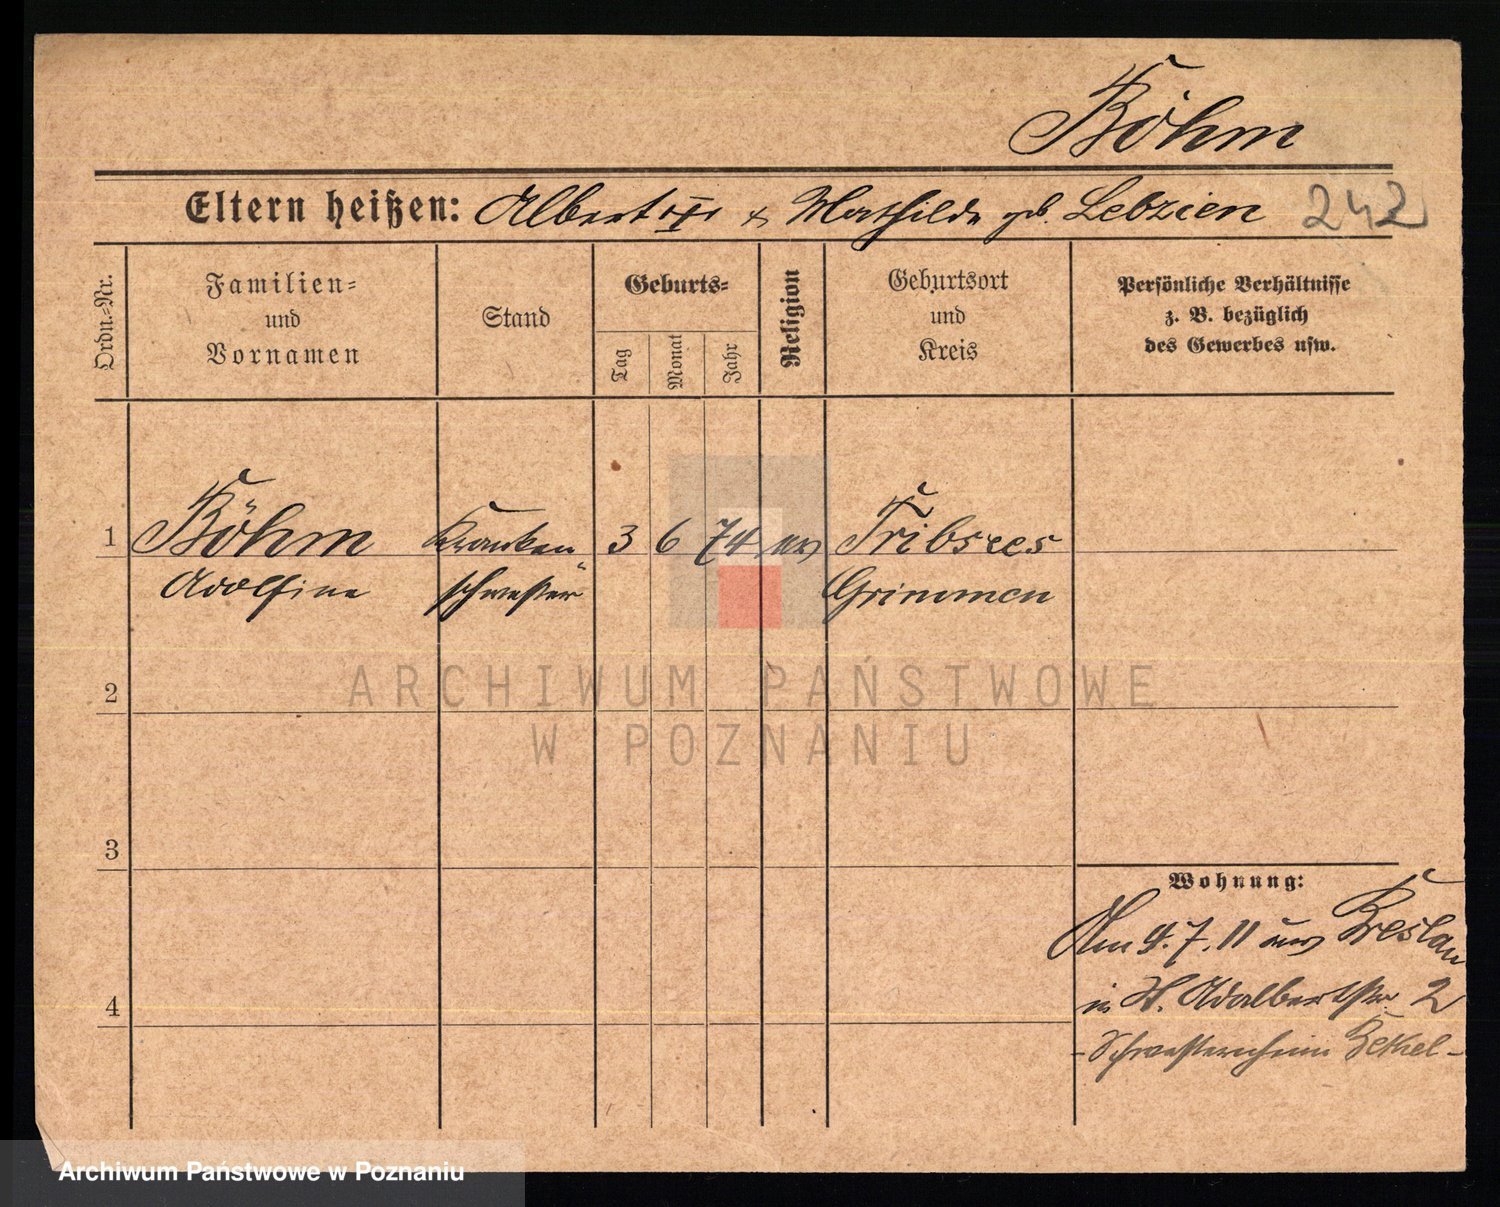 Böhm
Eltern heißen: Albert u. Mathilde geb. Lebzien 242
Ordn.-Nr.
Familien-
und
Vornamen
Stand
Geburts-
Tag
Monat
Jahr
Religion
Geburtsort
und
Kreis
Persönliche Verhältnisse
z. B. bezüglich
des Gewerbes usw.
1 Böhm Kranken 3 6 74 ev Tribsees
Adolfine schwester Grimmen
2
3
4
ARCHIWUM PAŃSTWOWE
W POZNANIU
Wohnung:
Am 4. 7. 11 aus Breslau
in St. Adalbertstr 2
- Schwesternheim Bethel -
Archiwum Państwowe w Poznaniu